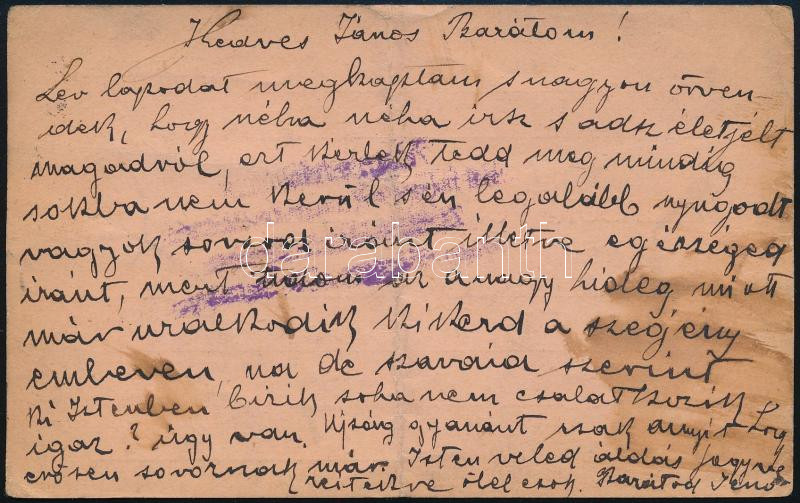 Kedves János Barátom!
Lev lapodat megkaptam s nagyon örven-
dek, hogy néha néha irsz s adsz életjélt
magadról, ezt kérlek tedd meg mindég
sokba nem kerül s én legalább nyugodt
vagyok sorsod iránt illetve egészséged
iránt, mert tudom az a nagy hideg miatt
már uralkodik kikerd a szegény
emberen, na de szavaid szerint
ki Istenben bizik soha nem csalatkozik
igaz? úgy van. Ujság gyanánt csak annyit hogy
erősen sovornak már. Isten veled áldás
ölel csok. Barátod Jenő
darabanth